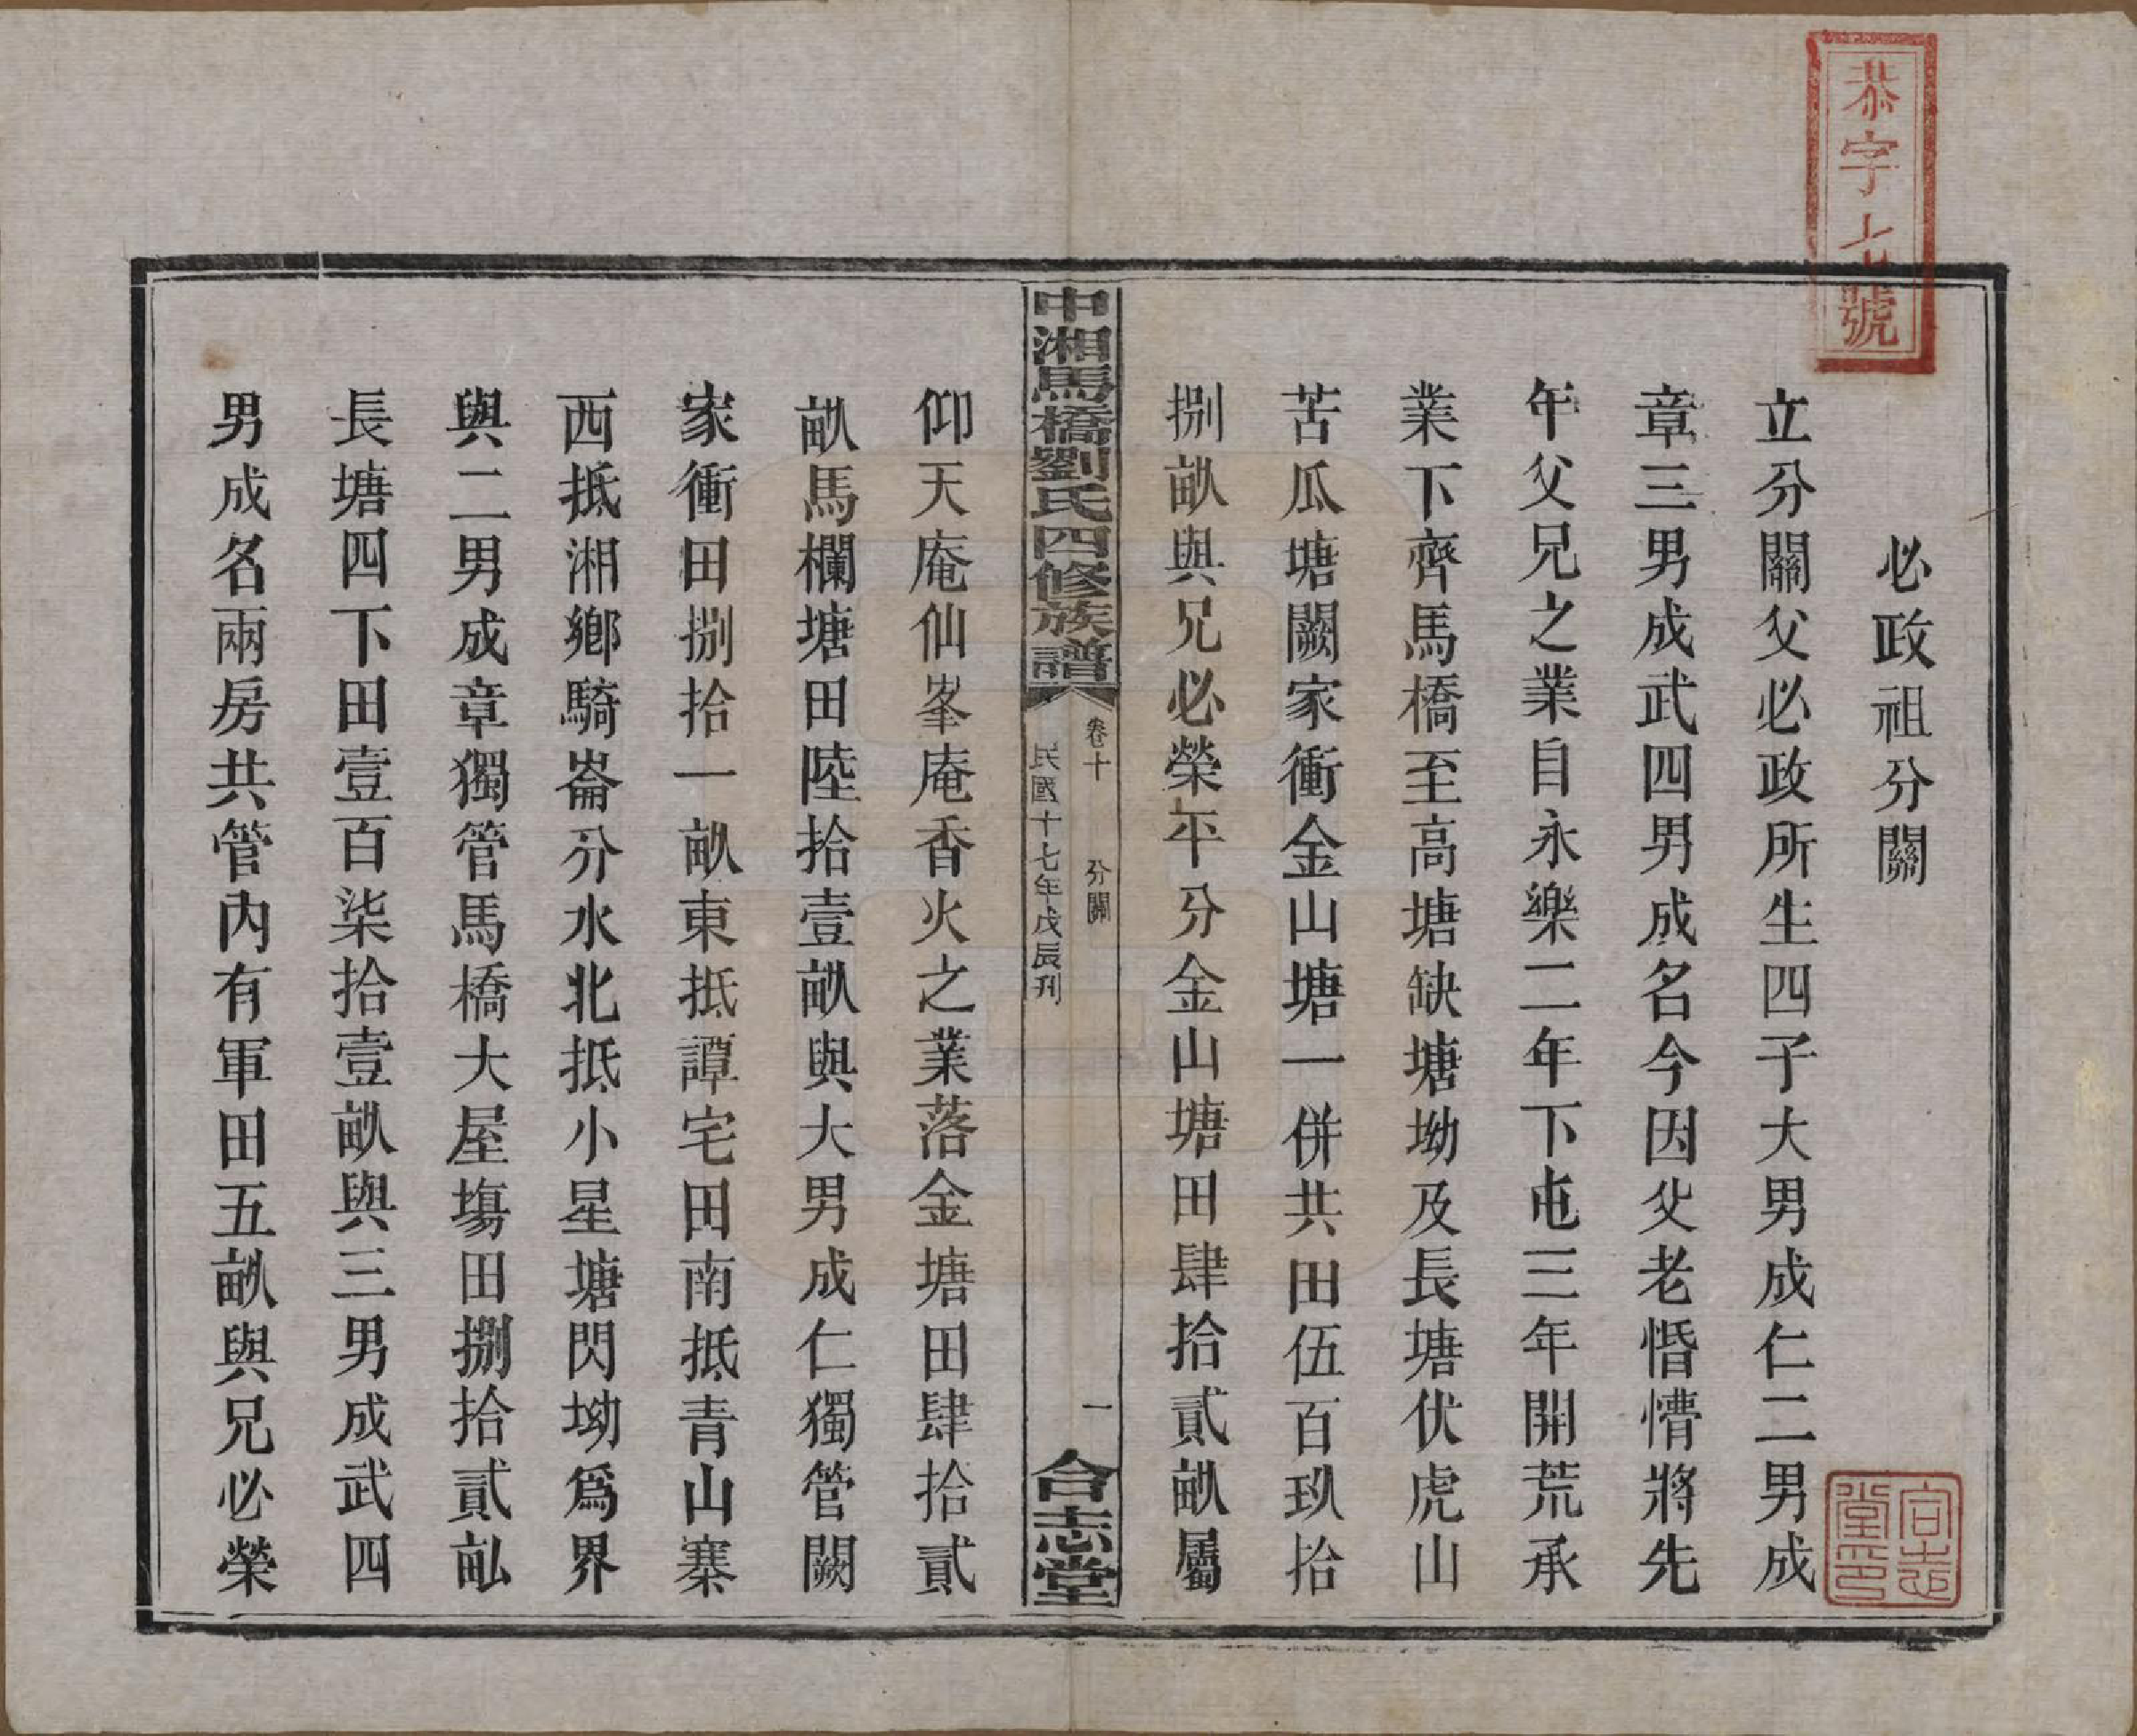 恭字七號
必政祖分關
立分關父必政所生四子大男成仁二男成
章三男成武四男成名今因父老惛懵將先
年父兄之業自永樂二年下屯三年開荒承
業下齊馬橋至高塘缺塘塘坳及長塘伏虎山
苦瓜塘闕家衝金山塘一併共田伍百玖拾
捌畝與兄必榮平分金山塘田肆拾貳畝屬
中湘馬橋劉氏四修族譜
卷十 分關 一
民國十七年戊辰刊
合志堂
仰天庵仙峯庵香火之業落金塘田肆拾貳
畝馬欄塘田陸拾壹畝與大男成仁獨管闕
家衝田捌拾一畝東抵譚宅田南抵青山寨
西抵湘鄉騎崙分水北抵小星塘閃坳為界
與二男成章獨管馬橋大屋塲田捌拾貳畝
長塘四下田壹百柒拾壹畝與三男成武四
男成名兩房共管內有軍田五畝與兄必榮
合志堂印